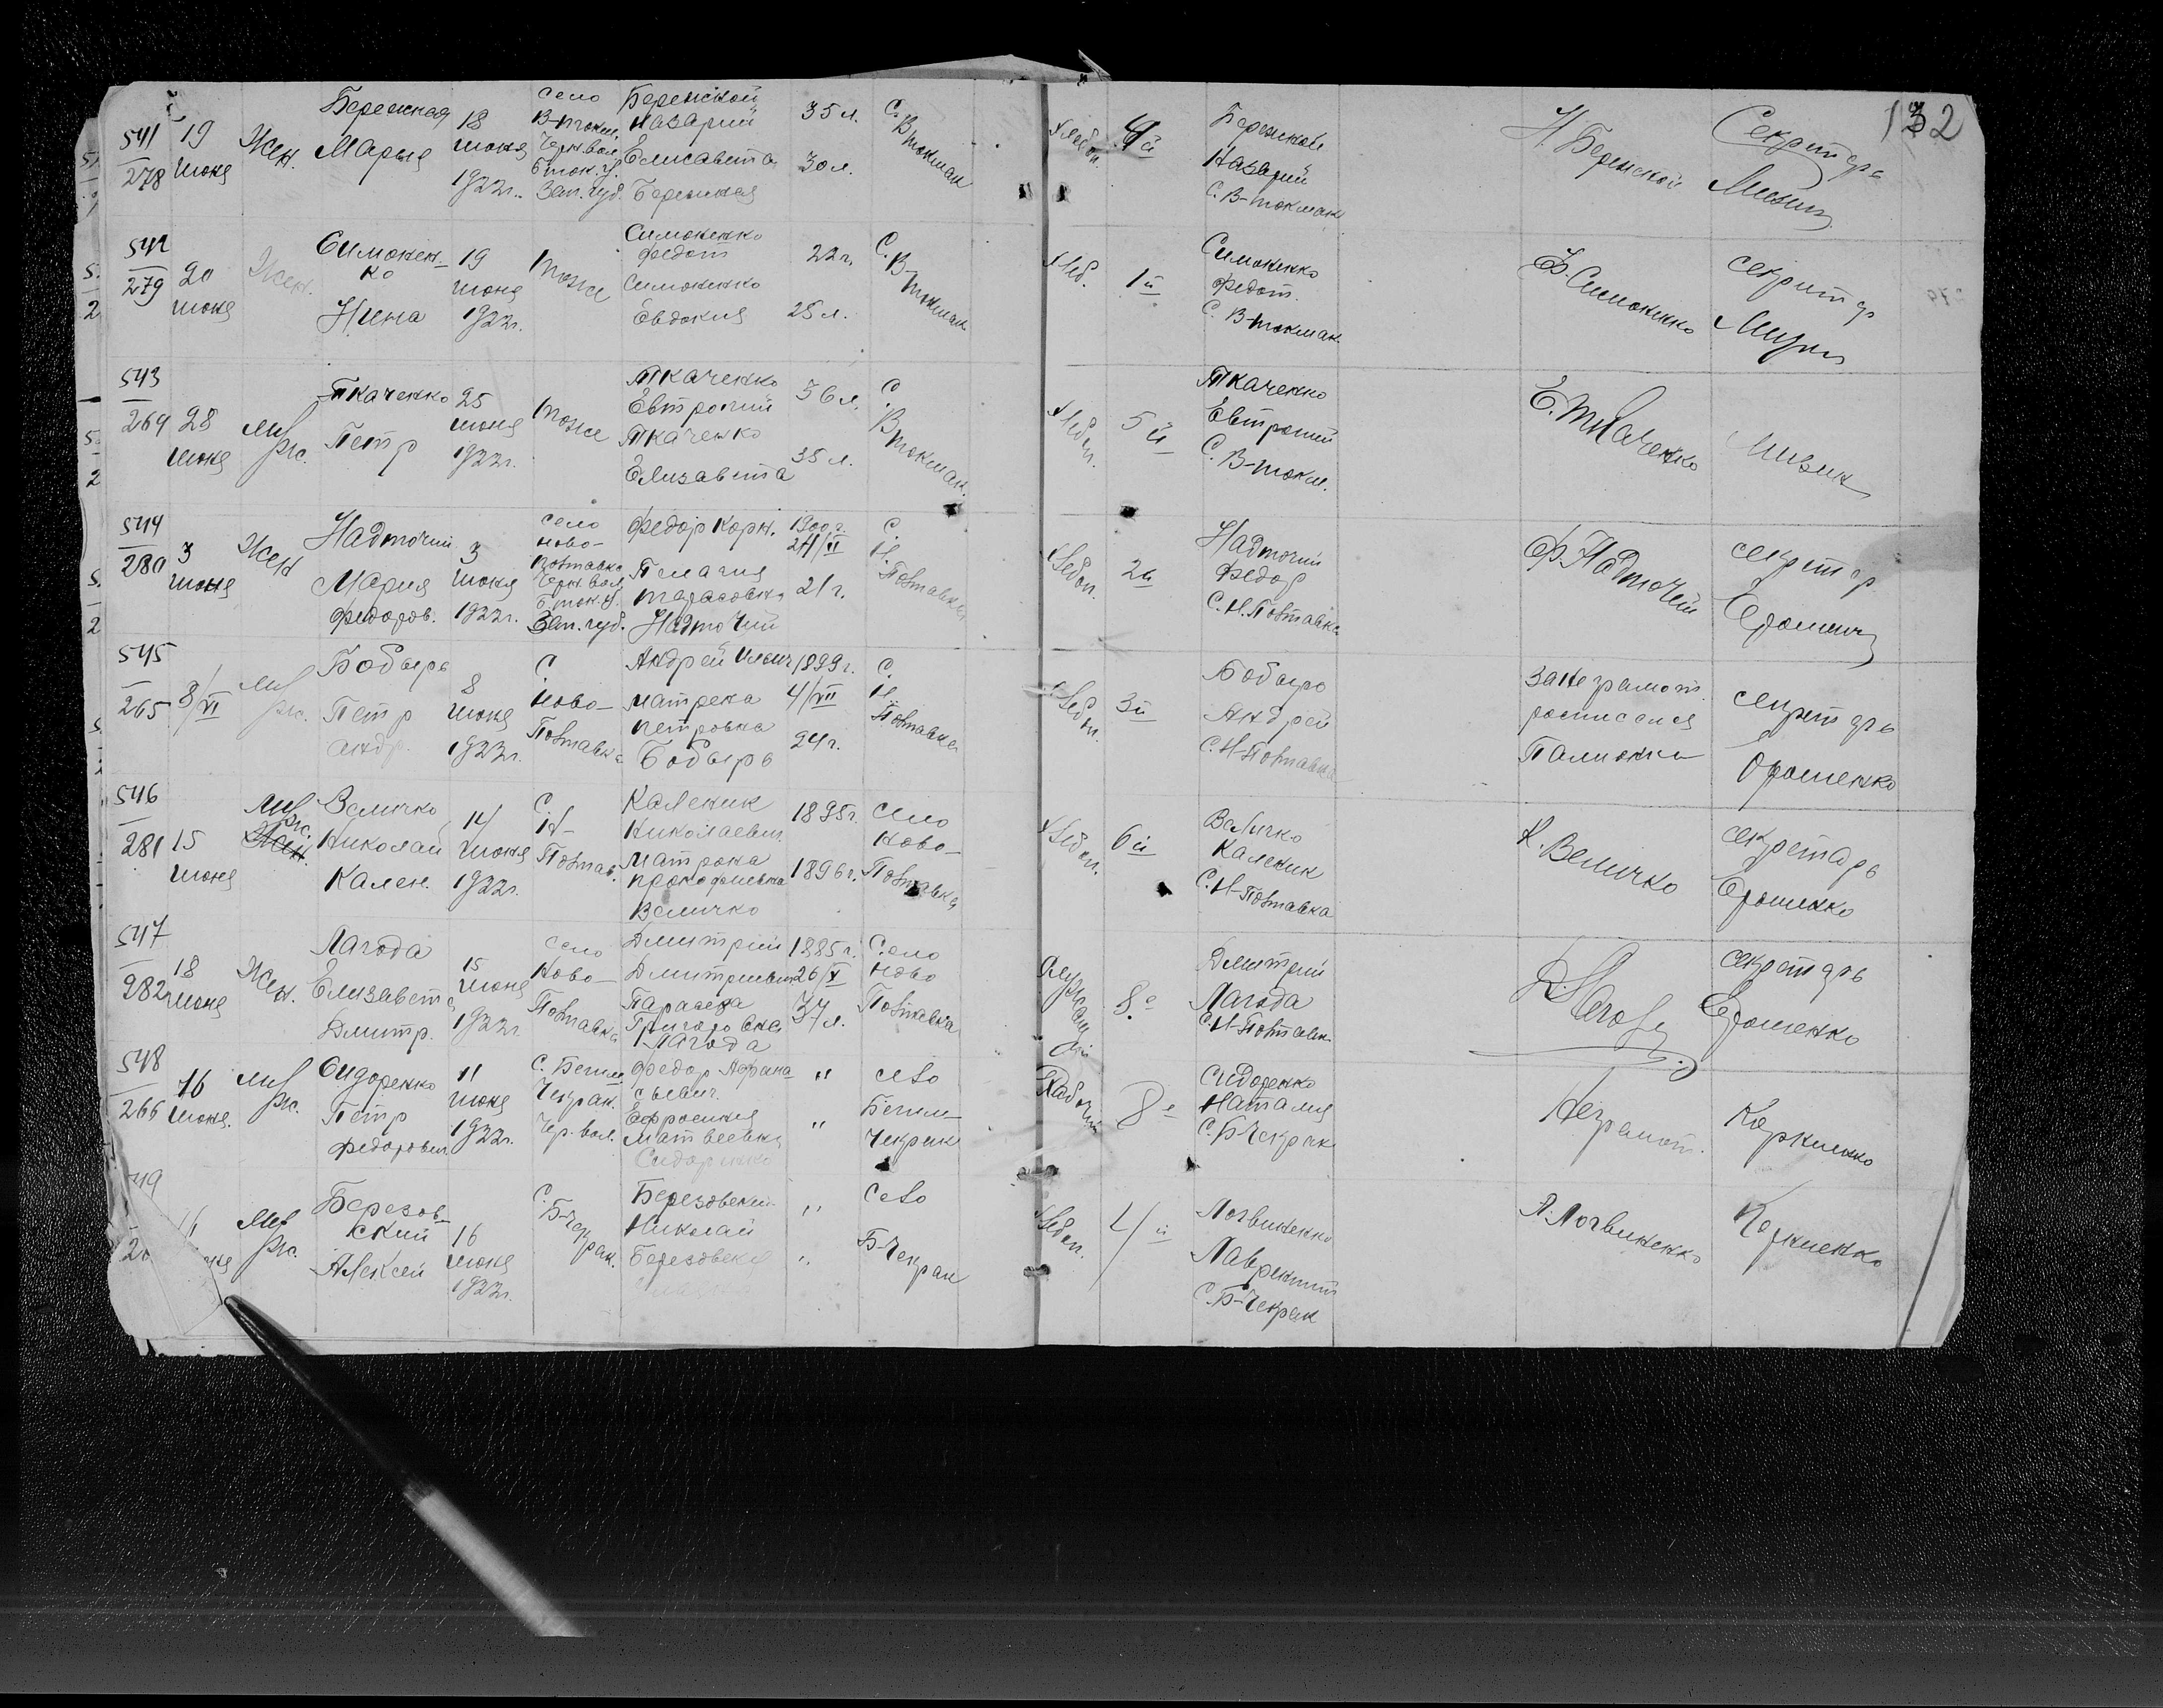 132
541
278
19
июня
Жен.
Бережная
Мария
18
июня
1922г.
село
В-токм.
Черн. вол.
Б ток. у.
Зап. губ.
Бережной
Назарий
Елисавета
Бережная
35 л.
30 л.
С.
В
токмак
Хлебоп.
4й
Бережной
Назарий
С. В-токмак
Н. Бережной
Секретарь
542
279
20
июня
Жен.
Симонен-
ко
Нина
19
июня
1922г.
тоже
Симоненко
Федот
Симоненко
Евдокия
22 г.
25 л.
С.
В-
токмак
Хлеб.
1й
Симоненко
Федот.
С. В-токмак.
Ф. Симоненко
секретарь
543
269
28
июня
Муж.
Ткаченко
Петр
25
июня
1922г.
тоже
Ткаченко
Евтропий
Ткаченко
Елизавета
36 л.
35 л.
С.
В
токмак.
Хлебоп.
5й
Ткаченко
Евтропий
С. В-токм.
Е. Ткаченко
544
280
3
июня
Жен
Надточий
Мария
Федоров.
3
июня
1922г.
село
ново-
Полтавка
Черн. вол
Б ток. у.
Зап. губ.
Федор Корн.
Пелагия
Тарасовна
Надточий
1900 г.
21 г.
С.
Н.
Полтавка
Хлебоп.
2й
Надточий
Федор
С. Н. Полтавка
Ф. Надточий
секретар
545
265
8/VI
Муж.
Бобырь
Петр
Андр.
8
июня
1922г.
С.
Ново-
Полтавка
Андрей Ильич
Матрена
Петровна
Бобырь
1899 г.
4/VII
24 г.
С.
Н.
Полтавка
Хлебоп.
3й
Бобырь
Андрей
С. Н-Полтавка
За неграмот.
росписался
секретарь
Ерошенко
546
281
15
июня
Муж.
Жен.
Величко
Николай
Кален.
14
июня
1922г.
С.
Н-
Полтав.
Каленик
Николаевич
Матрона
Прокофиевна
Величко
1895г.
1896г.
село
Ново-
Полтавка
Хлебоп.
6й
Величко
Каленик
С. Н-Полтавка
К. Величко
секретарь
Ерошенко
547
282
18
июня
Жен.
Лагода
Елизавета
Дмитр.
15
июня
1922г
село
Ново-
Полтавка
Дмитрий
Дмитриевич
Параскева
Григоровна
Лагода
1885г.
26/X
37 л.
Село
ново
Полтавка
Служащий
8е
Дмитрий
Лагода
С. Н-Полтавк.
Д. Лагода
секретарь
Ерошенко
548
266
16
июня.
Муж.
Сидоренко
Петр
Федорович
11
июня
1922г.
С. Бегим
Чекрак.
Чер. вол.
Федор Афана-
сьевич.
Ефросиния
Матвеевна
Сидоренко
"
"
село
Бегим-
Чекрак
Рабочий
8е
Сидоренко
Наталия
С. Б-Чекрак
Неграмот.
Корниенко
16
Муж.
Березов-
ский
Алексей
16
июня
1922г.
С.
Б-Чекрак.
Березовский
Николай
Березовская
"
"
село
Б-Чекрак
Хлебоп.
4й
Логвиненко
Лаврентий
С. Б-Чекрак
Л. Логвиненко
Корниенко